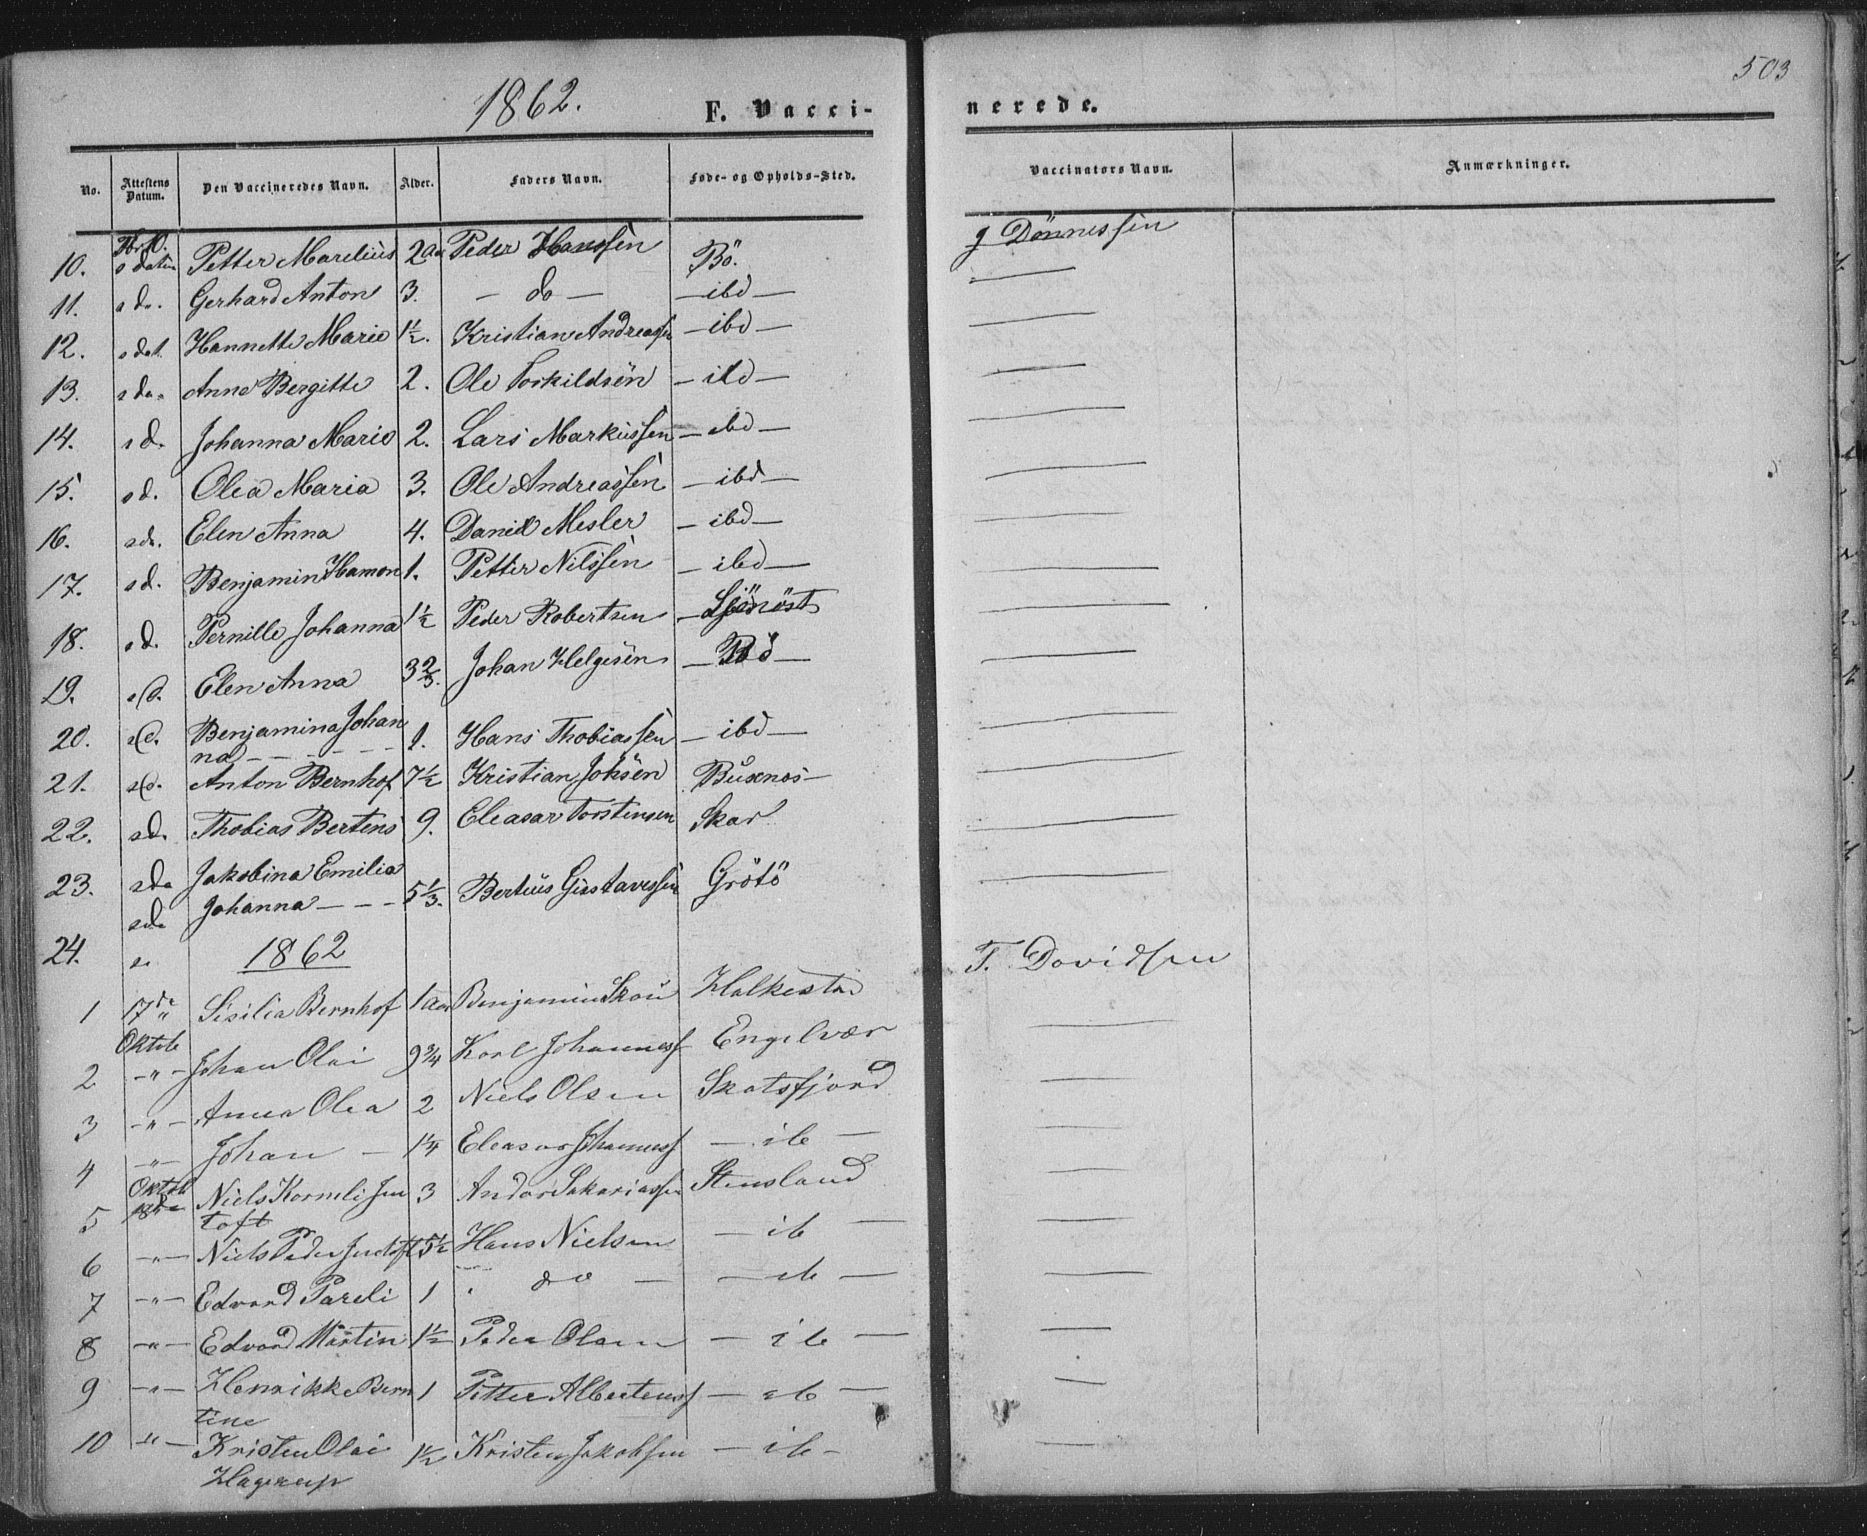 503
1862.
F. Vacci- nerede.
No. Attestens Datum. Den Vaccineredes Navn. Alder. Faders Navn. Føde- og Opholds-Sted. Vaccinators Navn. Anmærkninger.
10. Petter Marelius 2 aar Peder Hanssen Bö. J Dönnessen
11. s d. Gerhard Anton 3. — do — — ibd —
12. s dat. Hannette Marie 1½. Kristian Andreass — ibd —
13. s da. Anne Bergitte 2. Ole Torkildsen — ibd —
14. s d. Johanna Marie 2. Lars Markussen — ibd —
15. s d. Olea Maria 3. Ole Andreassen — ibd —
16. s da. Elen Anna 4. Daniel Mesler — ibd —
17. s d. Benjamin Hamon 1. Petter Nilssen — ibd —
18. s d. Pernille Johanna 1½ Peder Robertsen
19. s d. Elen Anna 3⅔. Johan Helgesen — Bö —
20. s d. Benjamina Johan
na - - - - 1. Hans Thobiassen — ibd —
21. s d. Anton Bernhof 7½ Kristian Joksen Buxnes
22. s da Thobias Bertens 9. Eleasar Torstensen Skar
23. s da Jakobina Emilia
s da Johanna - - - 5⅓. Bertius Gustavessen Grötö
24. s. 1862 T. Davidsen
1 17de Sisilia Bernhof 1 aar Benjamin Skou Halkestad
Oktob
2 — " — Johan Olai 9¾ Karl Johannesf Engelvær
3 — " — Anna Olea 2 Niels Olsen Skotsfjord
4 — " — Johan — 1¼ Eleasar Johannesf — ib —
5 Oktob 18de Niels Korneli Jen
toft 3 Andor Sakariassen Stensland
6 — " — Niels Peder Jentoft 5½ Hans Nielsen — ib —
7 — " — Edvard Pareli 1 " do — — ib —
8 — " — Edvard Martin 1½ Peder Olsen — ib —
9 — " — Henrikke Bern
tine 1 Petter Albertensf — ib —
10 — " — Kristen Olai
Hagerup 1½ Kristen Jakobsen — ib —